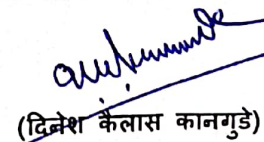 (दिनेश कैलास कानगुडे)